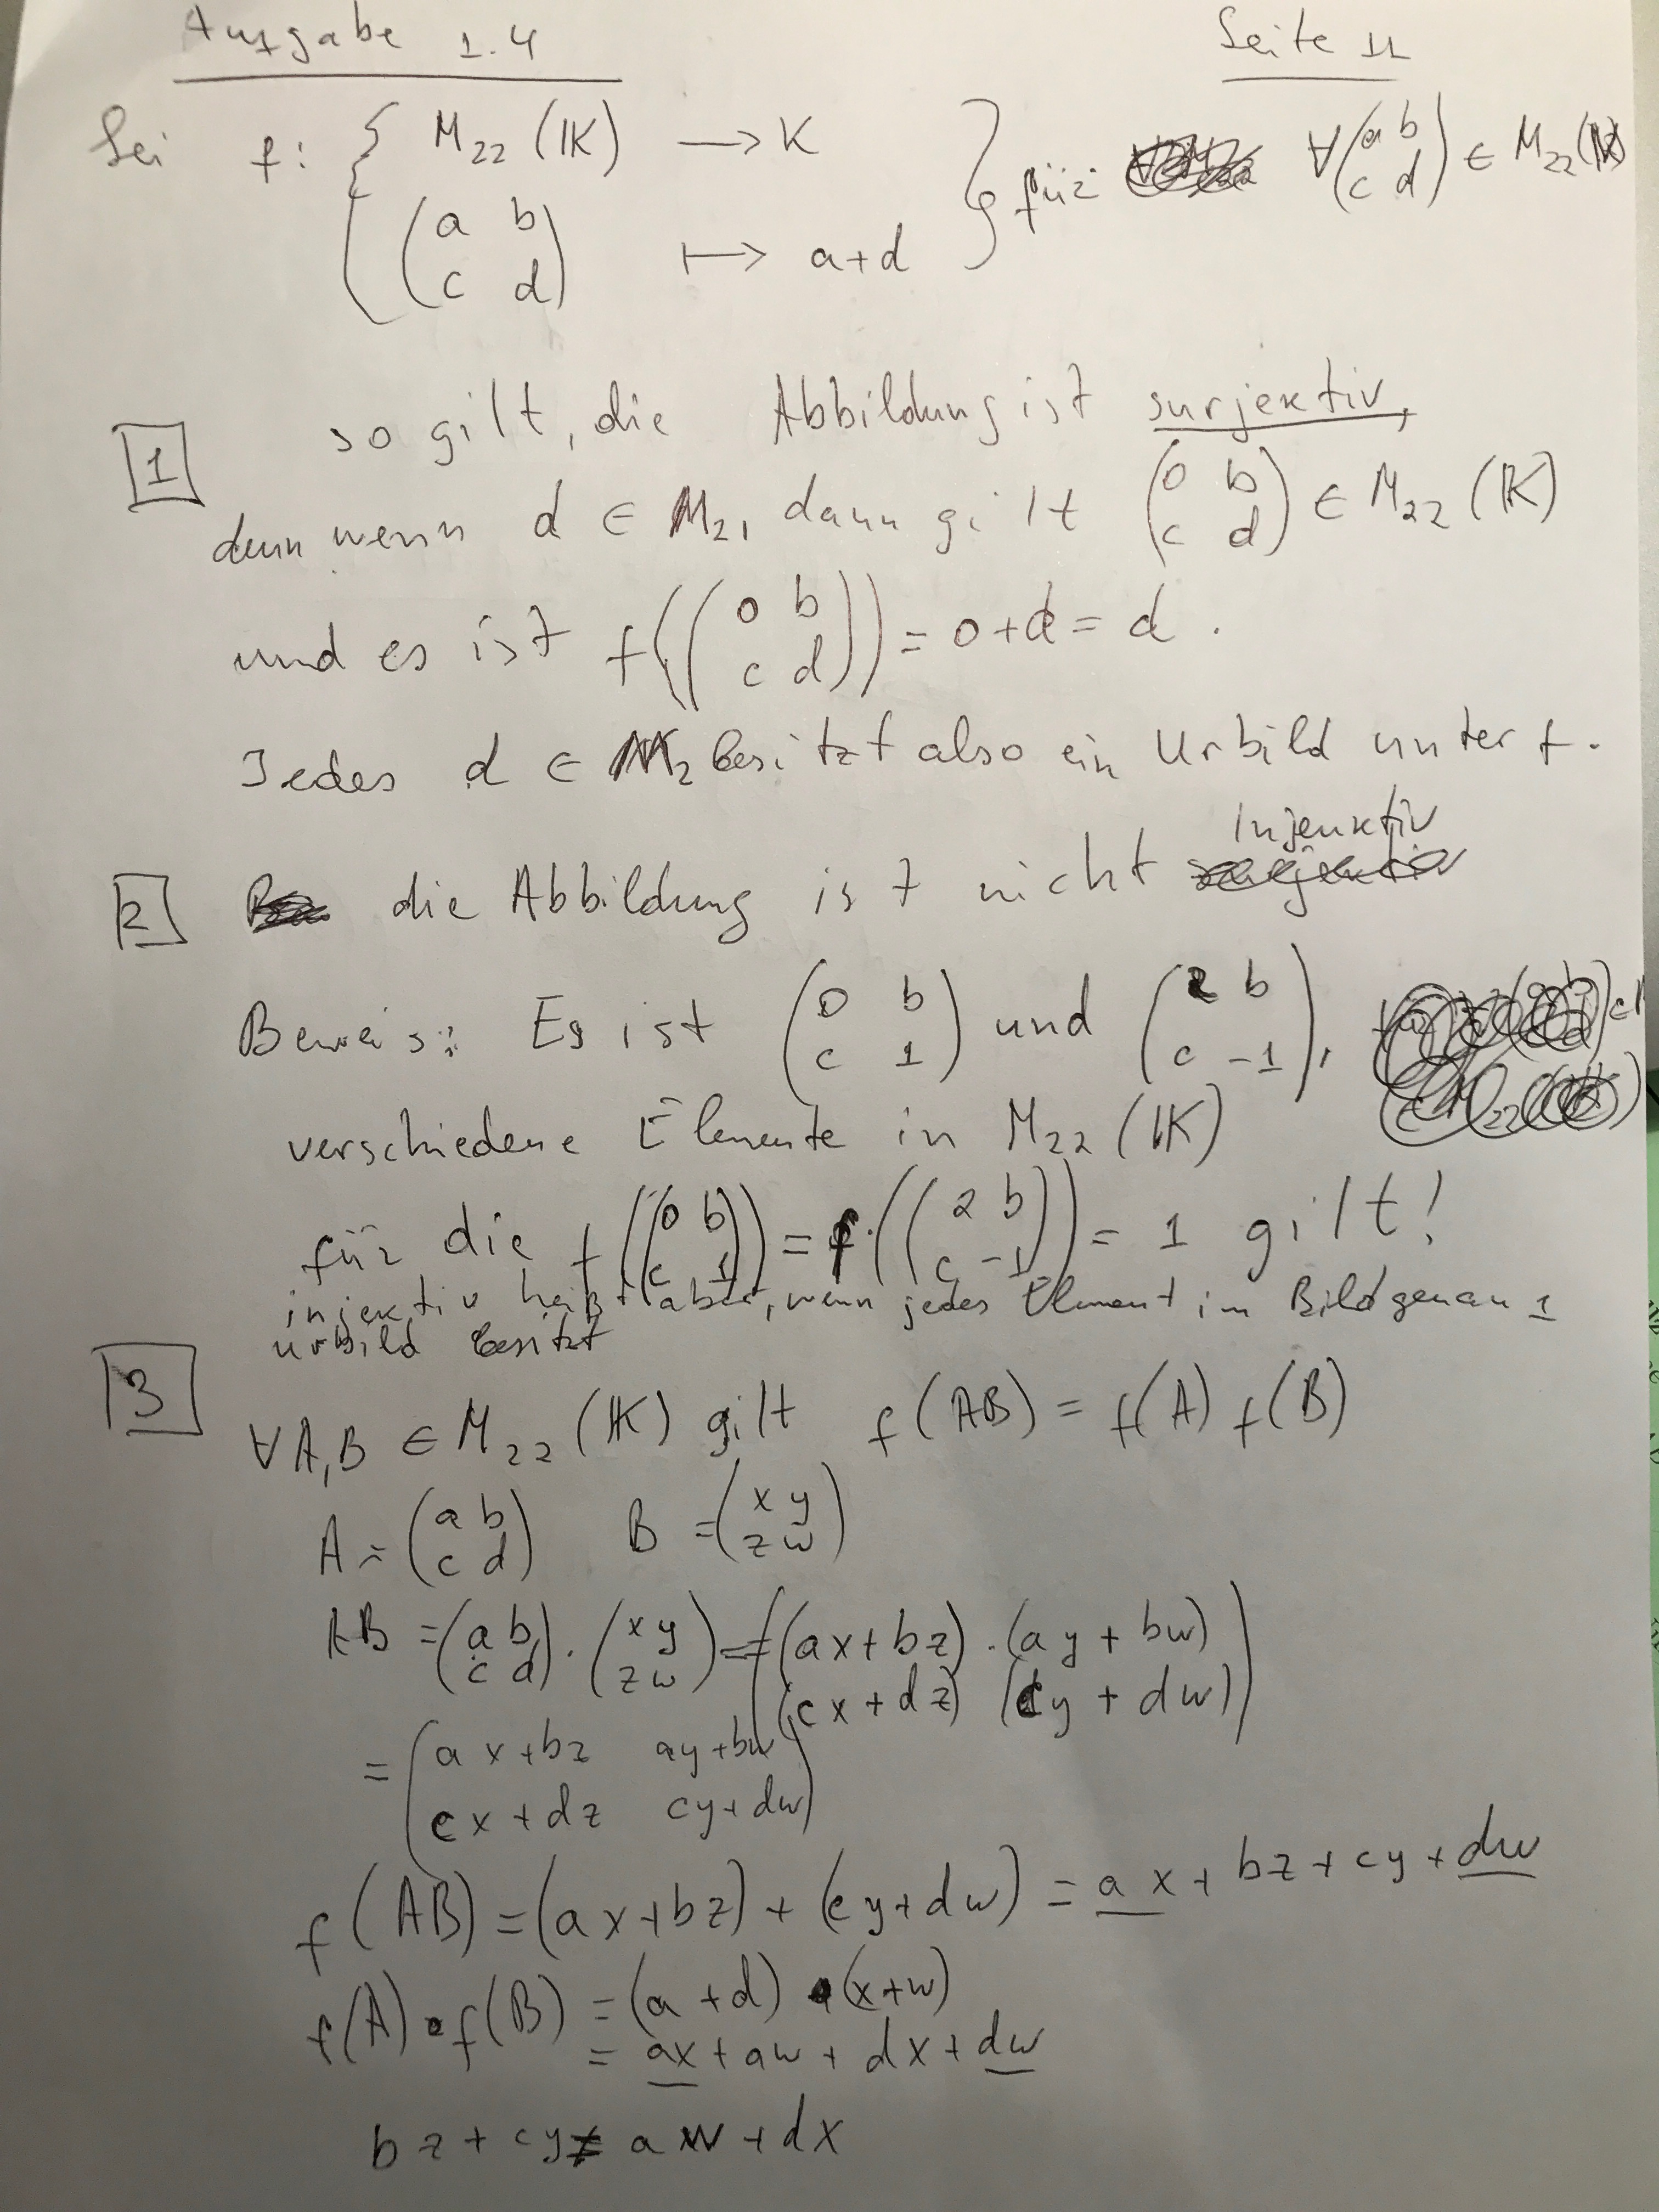 Aufgabe 1.4 Seite 11
Sei f: { M₂₂ (𝕂) → K } für ∀ (a b; c d) ∈ M₂₂(𝕂)
(a b; c d) ↦ a+d
1 so gilt, die Abbildung ist surjektiv,
denn wenn d ∈ M₂, dann gilt (0 b; c d) ∈ M₂₂ (𝕂)
und es ist f((0 b; c d)) = 0+d = d.
Jedes d ∈ M₂ besitzt also ein Urbild unter f.
2 die Abbildung ist nicht injektiv
Beweis: Es ist (0 b; c 1) und (2 b; c -1),
verschiedene Elemente in M₂₂ (𝕂)
für die f((0 b; c 1)) = f((2 b; c -1)) = 1 gilt!
injektiv heißt aber, wenn jedes Element im Bild genau 1
urbild besitzt
3
∀ A,B ∈ M₂₂ (𝕂) gilt f(AB) = f(A) f(B)
A = (a b; c d) B = (x y; z w)
AB = (a b; c d) · (x y; z w) = ((ax+bz) · (ay + bw); (cx+dz) (cy + dw))
= (ax+bz ay+bw; cx+dz cy+dw)
f(AB) = (ax+bz) + (cy+dw) = ax + bz + cy + dw
f(A) · f(B) = (a+d) · (x+w)
= ax + aw + dx + dw
bz + cy ≠ aw + dx